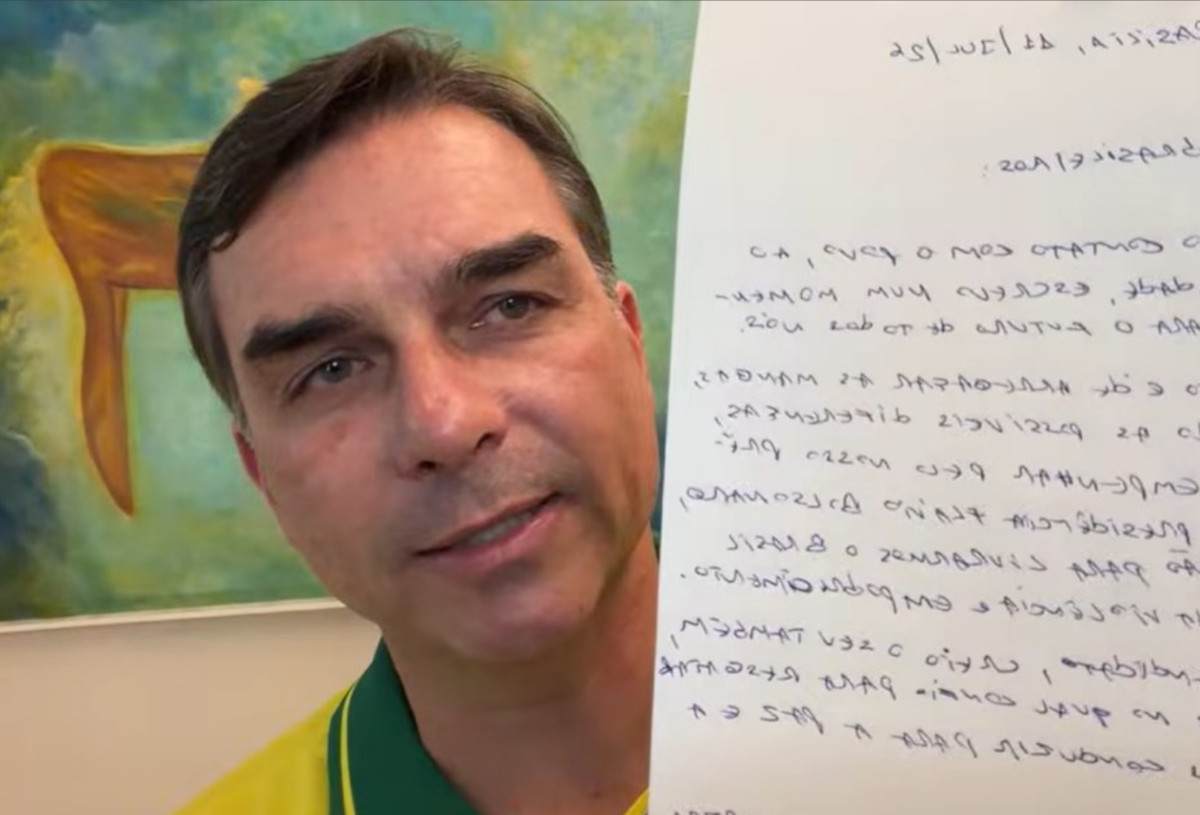 asília,
brasileiros:
o contato com o povo, ao
dade, escrevo num momen-
ara o futuro de todos nós.
o é de arregaçar as mangas,
as possíveis diferenças,
empenhar pelo nosso pré-
presidência Flávio Bolsonaro,
ão para livrarmos o Brasil
violência e empobrecimento.
creio o seu também,
no qual confio para resgatar
conduzir para a paz e a